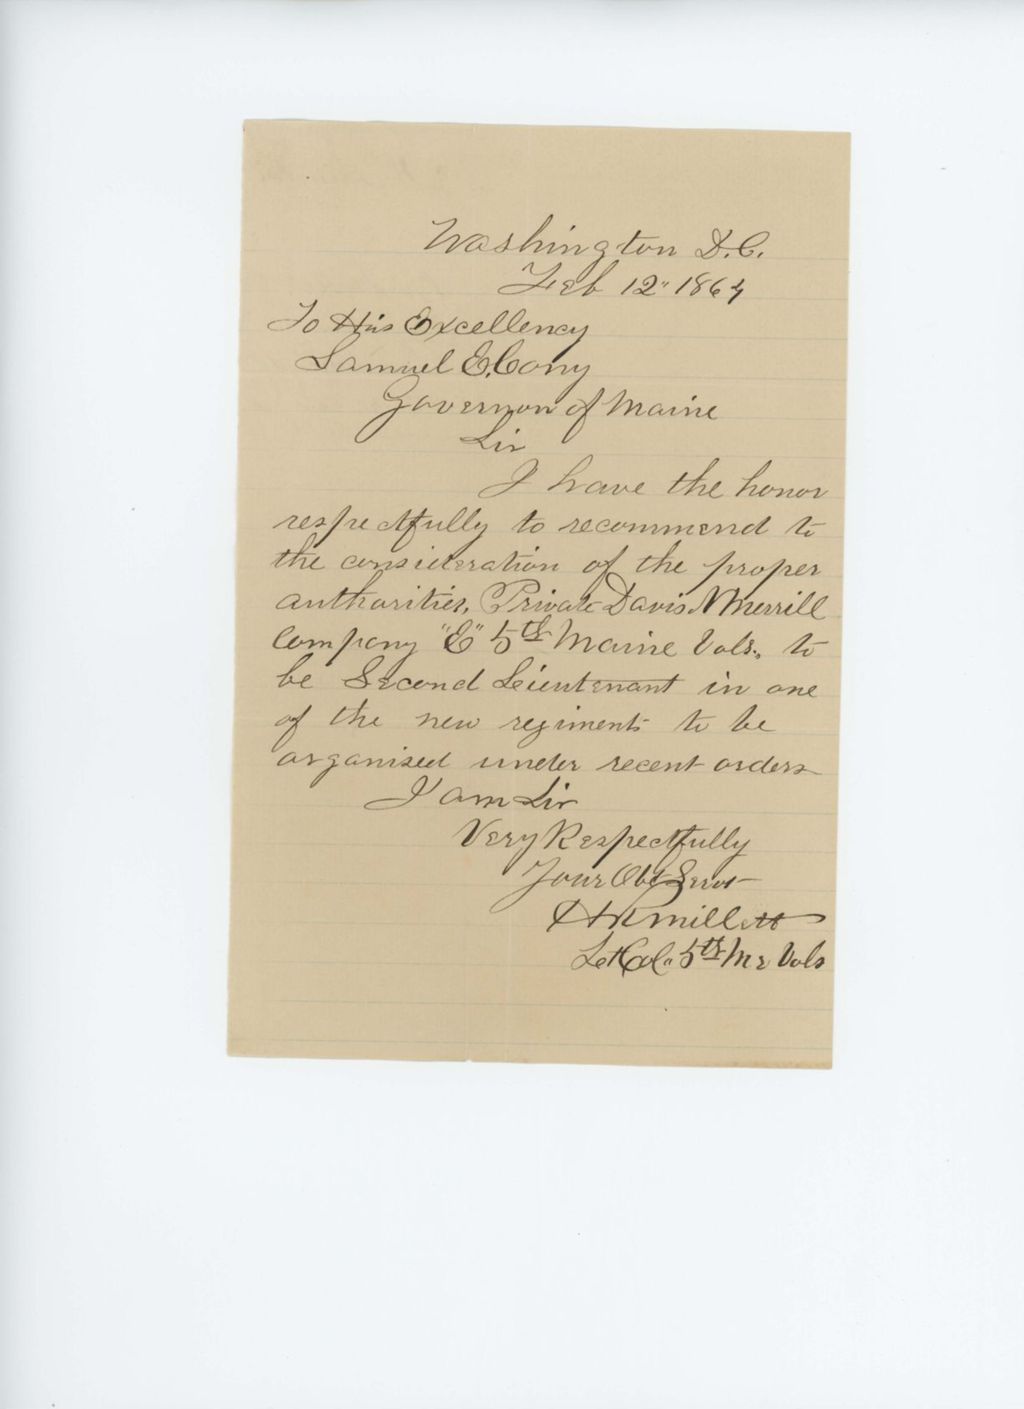 Washington D.C.
Feb 12" 1864
To His Excellency
Samuel E. Cony
Governor of Maine
Sir
I have the honor
respectfully to recommend to
the consideration of the proper
authorities, Private Davis N Merrill
Company "E" 5th Maine Vols., to
be Second Leieutenant in one
of the new regiments to be
organised under recent orders
I am Sir
Very Respectfully
Your Obt Servt
H R Millett
Lt Col. 5th Me Vols